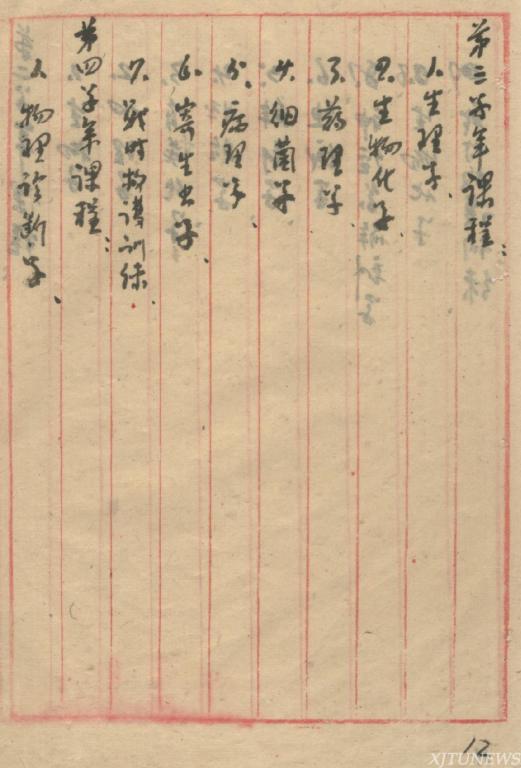 第三学年課程：
1、生理学、
2、生物化学、
3、药理学、
4、细菌学
5、病理学、
6、寄生虫学、
7、战时救護訓练
第四学年課程：
1、物理诊断学、
12
XJTUNEWS